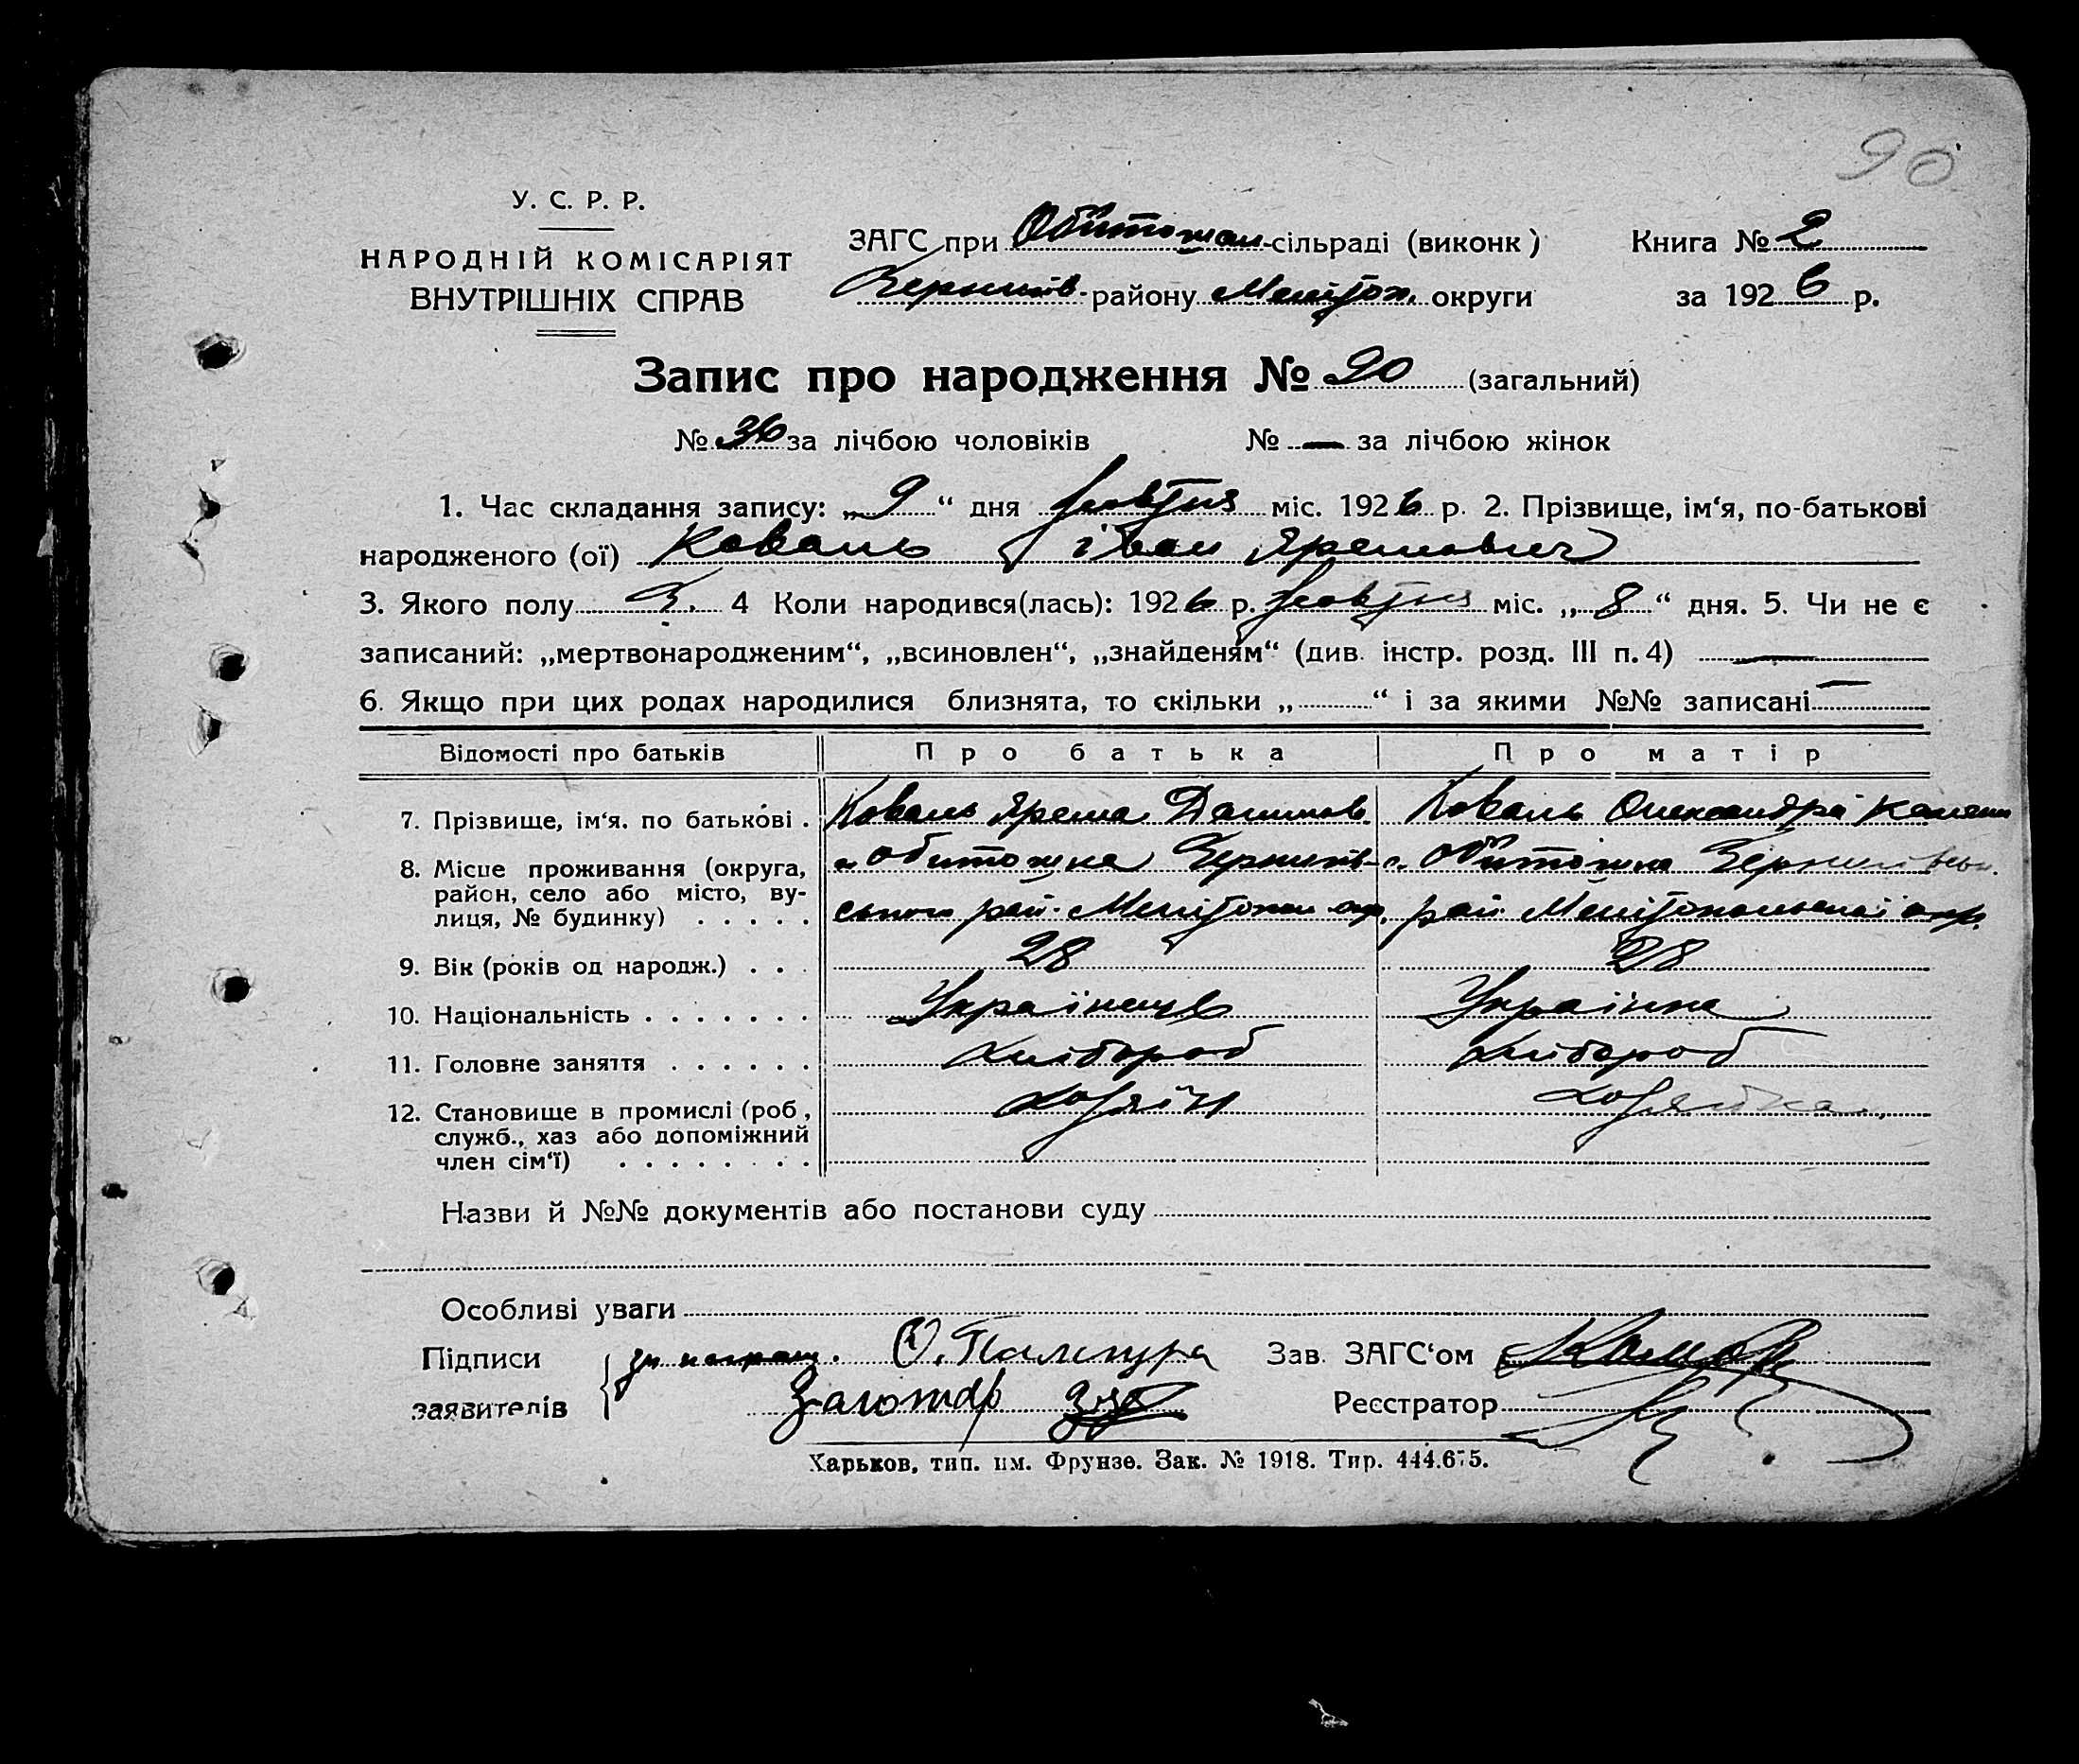 90
У. С. Р. Р.
НАРОДНІЙ КОМІСАРІЯТ
ВНУТРІШНІХ СПРАВ
ЗАГС при сільраді (виконк)
району Меліто́п. округи
Книга № 2
за 1926 р.
Запис про народження № 90 (загальний)
№ 36 за лічбою чоловіків № — за лічбою жінок
1. Час складання запису: „9“ дня жовтня міс. 1926 р. 2. Прізвище, ім‘я, по-батькові
народженого (ої) Коваль Іван Яремович
3. Якого полу Ч. 4 Коли народився(лась): 1926 р. жовтня міс. „8“ дня. 5. Чи не є
записаний: „мертвонародженим“, „всиновлен“, „знайденям“ (див. інстр. розд. III п. 4) —
6. Якщо при цих родах народилися близнята, то скільки „ “ і за якими №№ записані —
Відомості про батьків Про батька Про матір
7. Прізвище, ім‘я. по батькові . Коваль Ярема Коваль Олександра
8. Місце проживання (округа, с. Обиточна с. Обиточна
район, село або місто, ву-
лиця, № будинку) . . . . . ського рай. Мелітопол окр. рай. Мелітопольської окр.
9. Вік (років од народж.) . . . 28 28
10. Національність . . . . . . . Українець Українка
11. Головне заняття . . . . . . Хлібороб Хлібороб
12. Становище в промислі (роб., Хозяїн Хозяйка
служб., хаз або допоміжний
член сім‘ї) . . . . . . . .
Назви й №№ документів або постанови суду
Особливі уваги
Підписи
заявителів
Зав. ЗАГС‘ом
Реєстратор
Харьков, тип. им. Фрунзе. Зак. № 1918. Тир. 444.675.